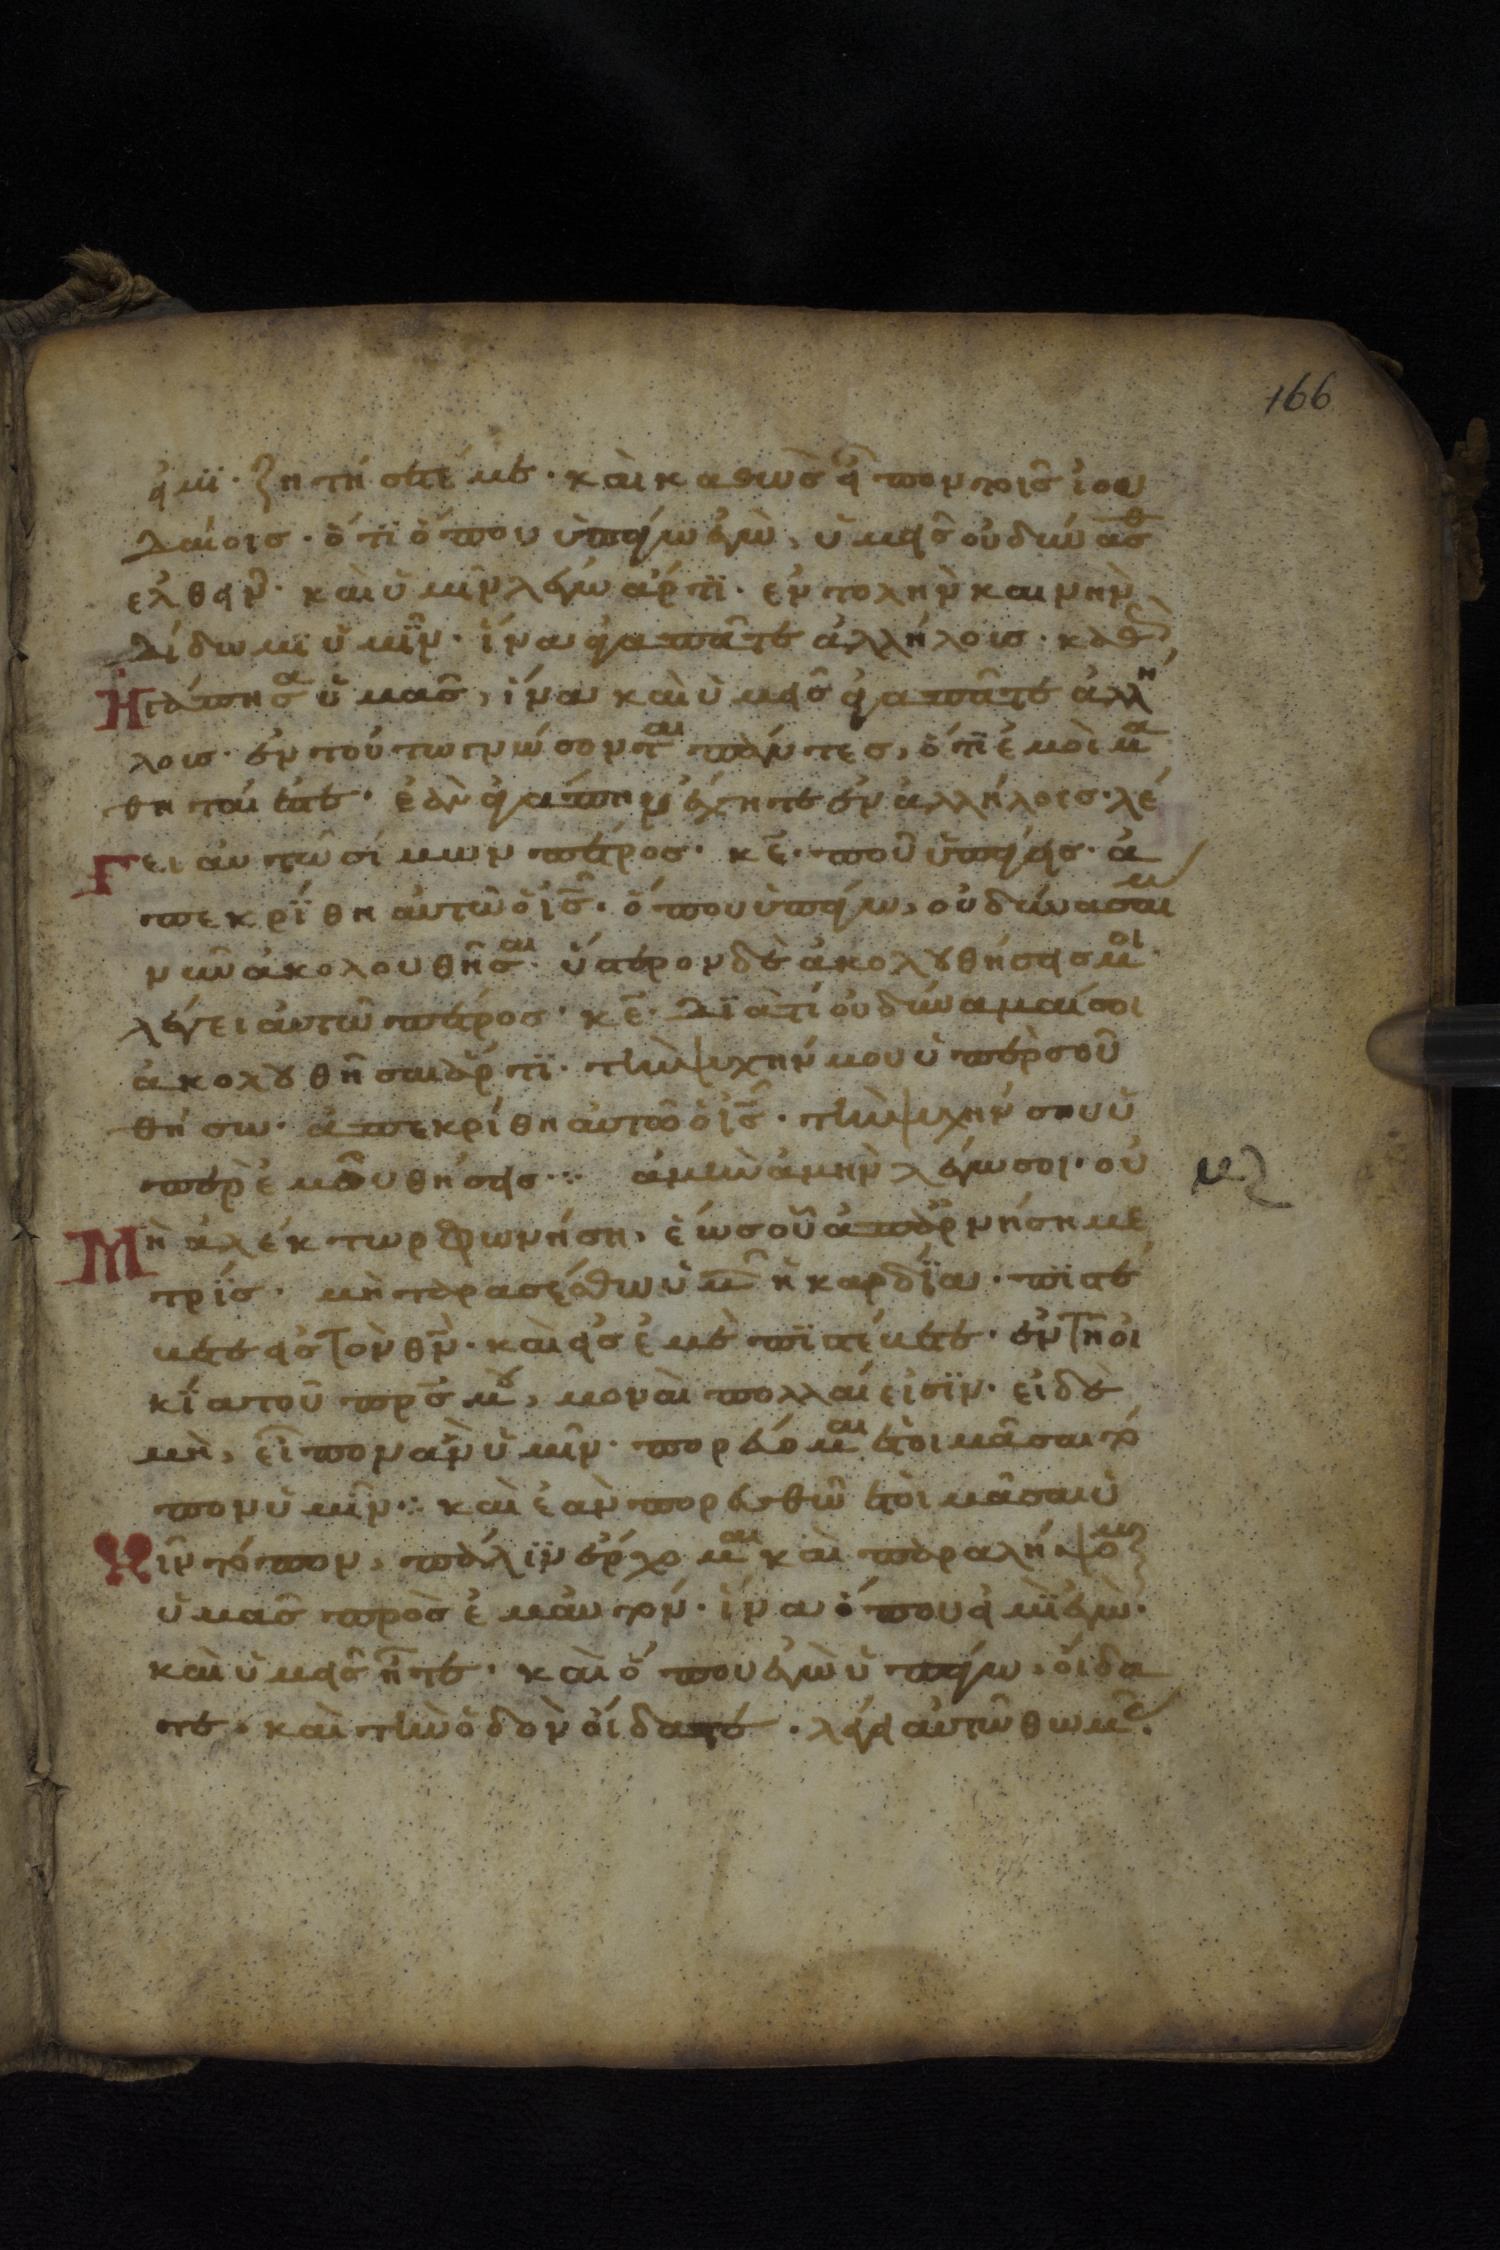 166
εἰμϊ· ζητήσετέ με· καὶ καθὼς εἶπον τοῖς ἰου
δαίοις· ὅτϊ ὅπου ὑπάγω ἐγὼ, ὑμεῖς οὐ δύνασθ
ἐλθεῖν· καὶ ὑμῖν λέγω ἄρτϊ· ἐντολὴν καινὴν
δίδωμϊ ὑμῖν· ἵνα ἀγαπᾶτε ἀλλήλοις· καθὼς
Ἠγάπησα ὑμᾶς, ἵνα καὶ ὑμεῖς ἀγαπᾶτε ἀλλή
λοις· ἐν τούτω γνώσονται πάντες, ὅτϊ ἐμοὶ μα
θηταί ἐστε· ἐὰν ἀγάπην ἔχητε ἐν ἀλλήλοις· λέ
Γει αυτῶ σίμων πέτρος· κε̅· ποῦ ὑπάγεις· ἀ
πεκρΐθη αὐτῶ ὁ ις̅· ὅπου ὑπάγω, οὐ δύνασαι μοι
νῦν ἀκολουθῆσαι· ὕστερον δὲ ἀκολουθήσεις μοι·
λέγει αὐτῶ πέτρος· κε̅· δϊατί οὐ δύναμαί σοι
ἀκολουθῆσαι ἄρτϊ· τὴν ψυχήν μου ὑπὲρ σοῦ
θήσω· ἀπεκρίθη αὐτῶ ὁ ις̅· τὴν ψυχήν σου ὑ
πὲρ ἐμοῦ θήσεις· ἀμὴν ἀμὴν λέγω σοι· οὐ
Μὴ ἀλέκτωρ φωνήση, ἕως οὗ ἀπαρνήση με
τρίς· μὴ ταρασσέσθω ὑμῶν ἡ καρδΐα· πϊστε
υετε εἰς τὸν θν̅· καὶ εἰς ἐμὲ πϊστέυετε· ἐν τῆ οἰ
κΐα τοῦ πρς̅ μου, μοναὶ πολλαί εἰσϊν· εἰ δὲ
μὴ, εἶπον ἂν ὑμῖν· πορεύομαι ἑτοιμᾶσαι τό
πον ὑμῖν· καὶ ἐὰν πορευθῶ ἑτοιμᾶσαι ὑ
Μῖν τόπον, πάλϊν ἔρχομαι καὶ παραλήψομαι
ὑμᾶς πρὸς ἐμαυτόν· ἵνα ὅπου εἰμϊ ἐγὼ·
καὶ ὑμεῖς ἦτε· καὶ ὅπου ἐγὼ ὑπάγω, οἴδα
τε, καὶ τὴν ὁδὸν οἴδατε· λέγει αὐτῶ θωμᾶς·